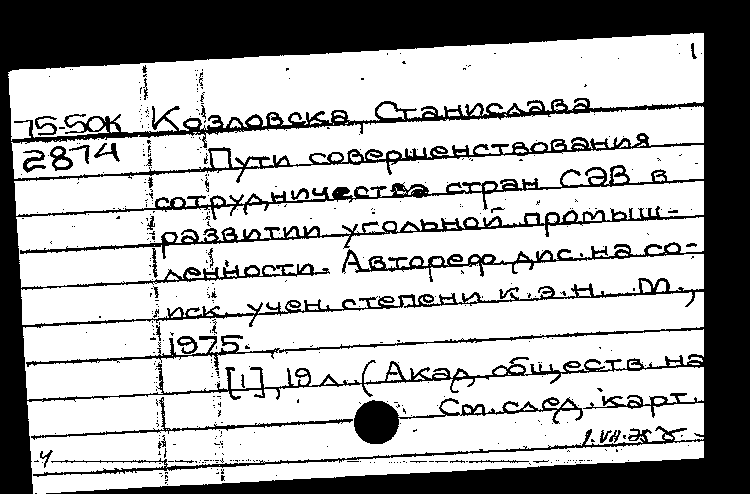 1
75-50К Козловска, Станислава
2874 Пути совершенствования
сотрудничества стран СЭВ в
развитии угольной промыш-
ленности. Автореф. дис. на со-
иск. учен. степени к.э.н. М.,
1975.
[1], 19 л. (Акад. обществ. на
См. след. карт.